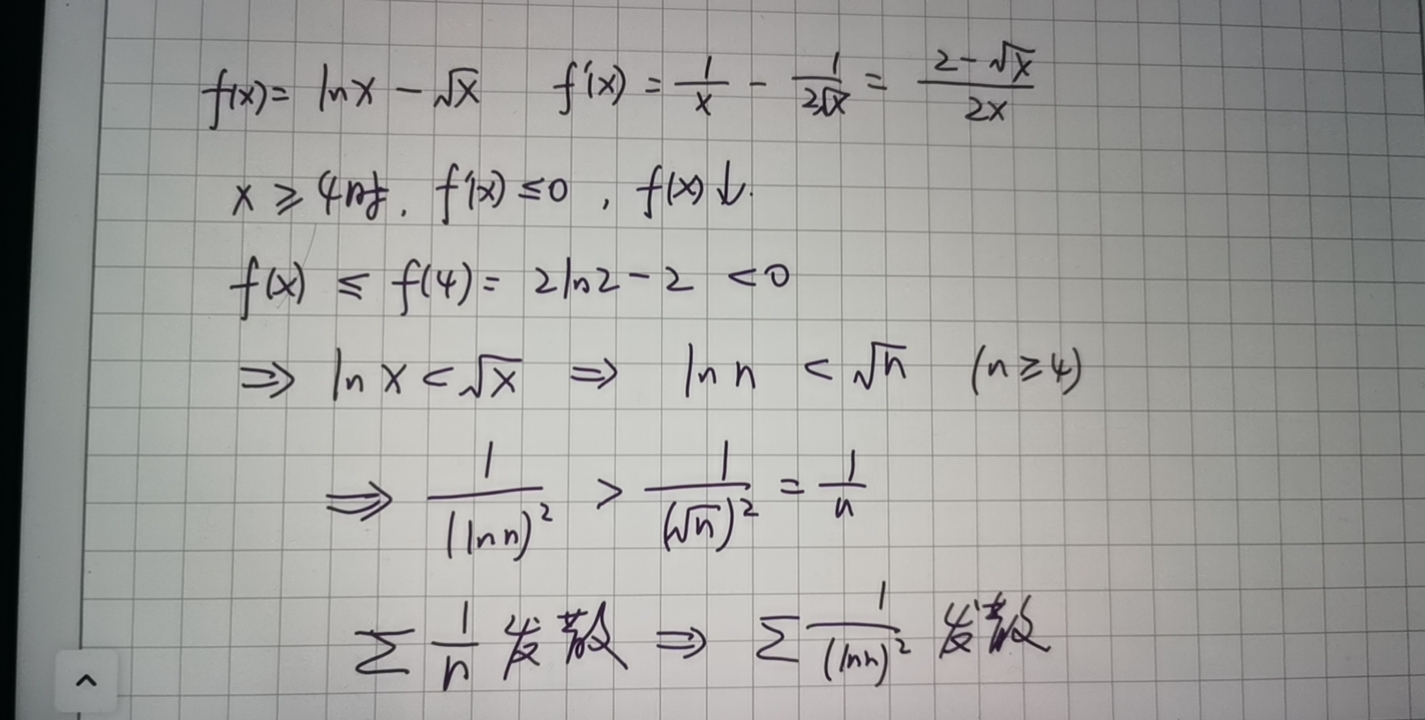 f(x) = ln x − √x  f'(x) = 1/x − 1/(2√x) = (2 − √x)/(2x)
x ≥ 4时, f'(x) ≤ 0, f(x)↓.
f(x) ≤ f(4) = 2ln2 − 2 < 0
⇒ ln x < √x ⇒ ln n < √n (n ≥ 4)
⇒ 1/(ln n)² > 1/(√n)² = 1/n
∑ 1/n 发散 ⇒ ∑ 1/(ln n)² 发散